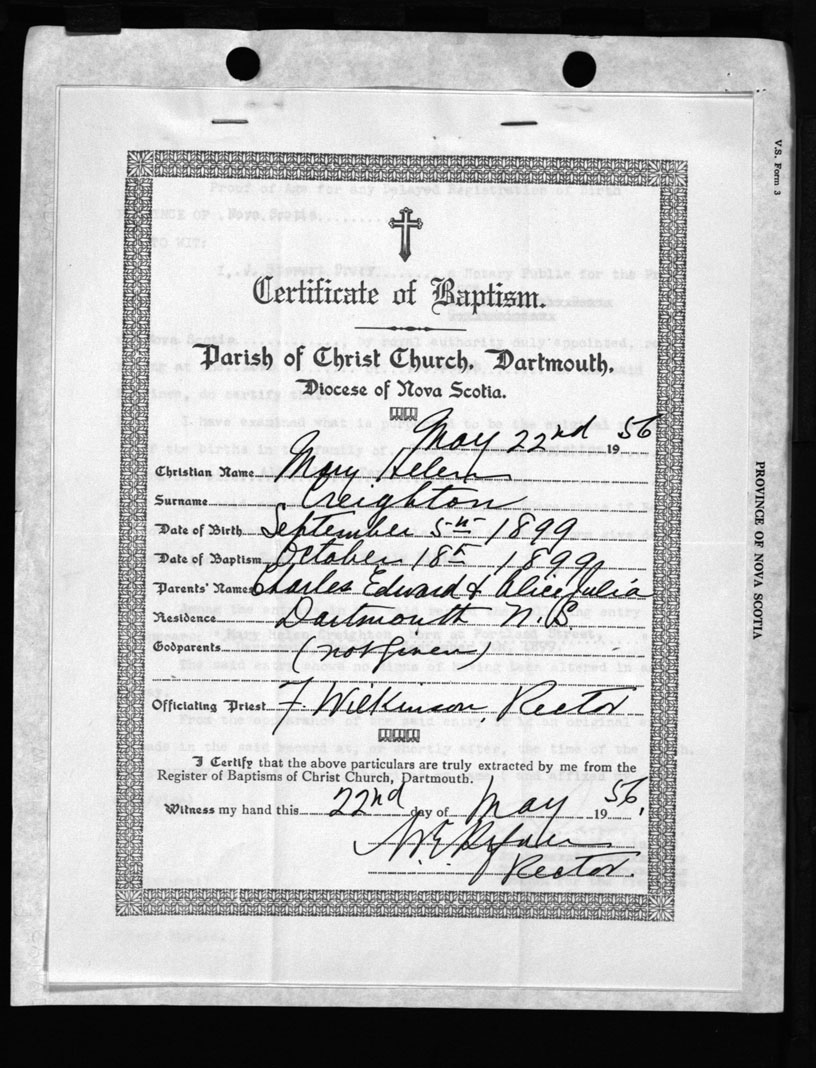 Certificate of Baptism.
Parish of Christ Church, Dartmouth,
Diocese of Nova Scotia.
May 22nd 1956
Christian Name Mary Helen
Surname Creighton
Date of Birth September 5th 1899
Date of Baptism October 18th, 1899
Parents' Names Charles Edward & Alice Julia
Residence Dartmouth N.S
Godparents (not given)
Officiating Priest F. Wilkinson, Rector
I Certify that the above particulars are truly extracted by me from the
Register of Baptisms of Christ Church, Dartmouth.
Witness my hand this 22nd day of May 1956,
Rector.
V.S. Form 3
PROVINCE OF NOVA SCOTIA
Proof of Age for any Delayed Registration of Birth